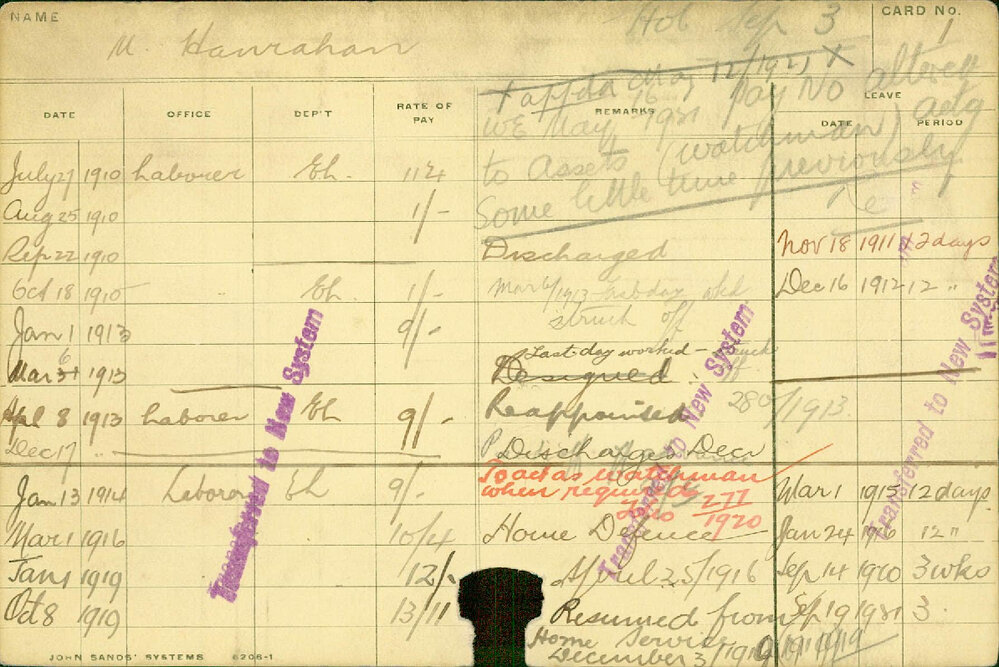 NAME
M. Hanrahan
CARD No.
1
Hob Sep 3
+ appta May 12/1921 X
Pay No altered
WE May 1921
to Assets (watchman) actg
Some little time previously
DATE OFFICE DEP'T RATE OF PAY REMARKS LEAVE DATE PERIOD
July 27 1910 Laborer Eh. 11¾
Aug 25 1910 1/-
Sep 22 1910 Discharged Nov 18 1911 12 days
Oct 18 1910 Eh. 1/- struck off Dec 16 1912 12 "
Jan 1 1913 9/-
Last day worked -
Mar 6 31 1913 Resigned
Apl 8 1913 Laborer Eh 9/- Reappointed 280/1913
Dec 17 " Discharged Decr
Jan 13 1914 Laborer Eh 9/- To act as watchman Mar 1 1915 12 days
when required
277
1920
Mar 1 1916 10/4 Home Defence Jan 24 1916 12 "
Jan 1 1919 12/- April 25/1916 Sep 14 1920 3 wks
Oct 8 1919 13/11 Resumed from Sep 19 1921 3.
Home Service
December 3/1919
Transferred to New System
Transferred to New System
Transferred to New System
JOHN SANDS' SYSTEMS 6206-1